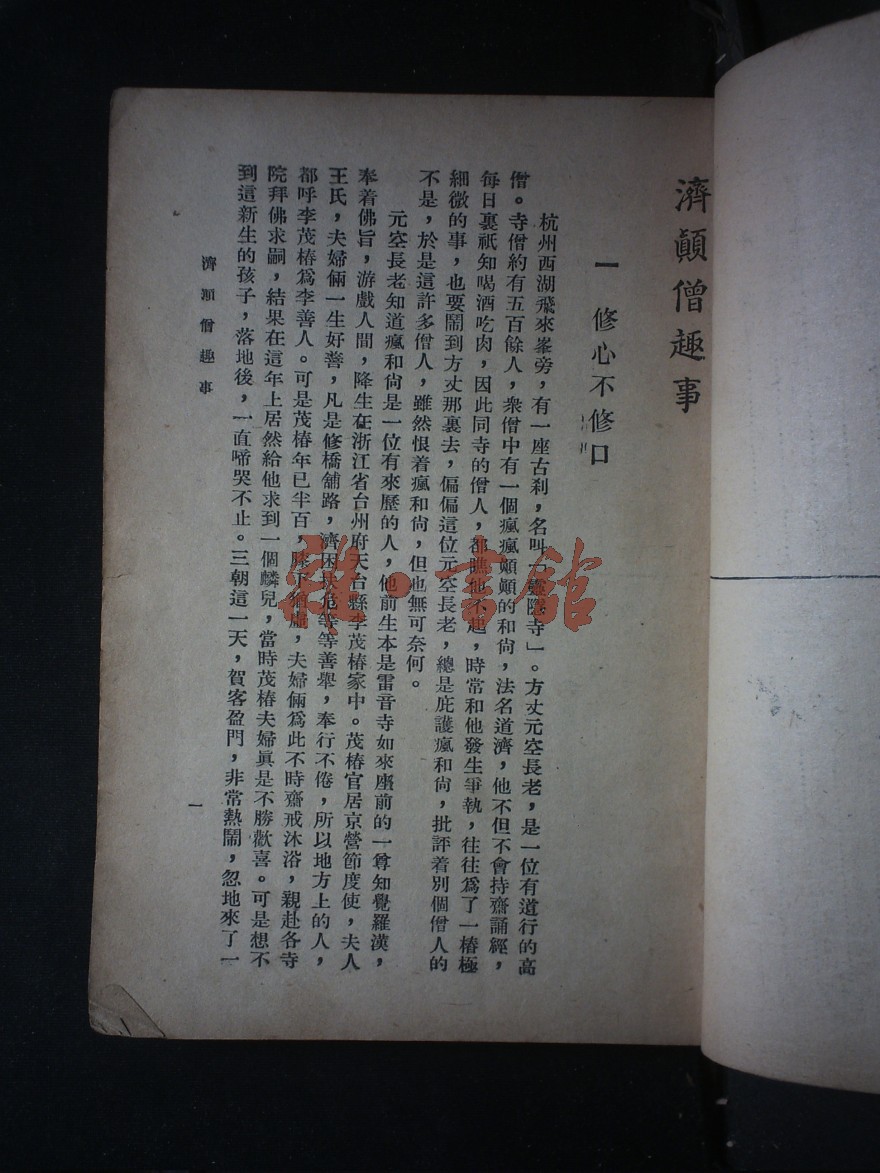 濟顚僧趣事
一 修心不修口
杭州西湖飛來峯旁，有一座古刹，名叫「靈隱寺」。方丈元空長老，是一位有道行的高
僧。寺僧約有五百餘人，衆僧中有一個瘋瘋顚顚的和尙，法名道濟，他不但不會持齋誦經，
每日裏祇知喝酒吃肉，因此同寺的僧人，都瞧他不起，時常和他發生爭執，往往爲了一樁極
細微的事，也要鬧到方丈那裏去，偏偏這位元空長老，總是庇護瘋和尙，批評着別個僧人的
不是，於是這許多僧人，雖然恨着瘋和尙，但也無可奈何。
元空長老知道瘋和尙是一位有來歷的人，他前生本是雷音寺如來座前的一尊知覺羅漢，
奉着佛旨，游戲人間，降生在浙江省台州府天台縣李茂椿家中。茂椿官居京營節度使，夫人
王氏，夫婦倆一生好善，凡是修橋舖路，濟困扶危等等善舉，奉行不倦，所以地方上的人，
都呼李茂椿爲李善人。可是茂椿年已半百，膝下猶虛，夫婦倆爲此不時齋戒沐浴，親赴各寺
院拜佛求嗣，結果在這年上居然給他求到一個麟兒，當時茂椿夫婦眞是不勝歡喜。可是想不
到這新生的孩子，落地後，一直啼哭不止。三朝這一天，賀客盈門，非常熱鬧，忽地來了一
濟顚僧趣事
一
雜·書館